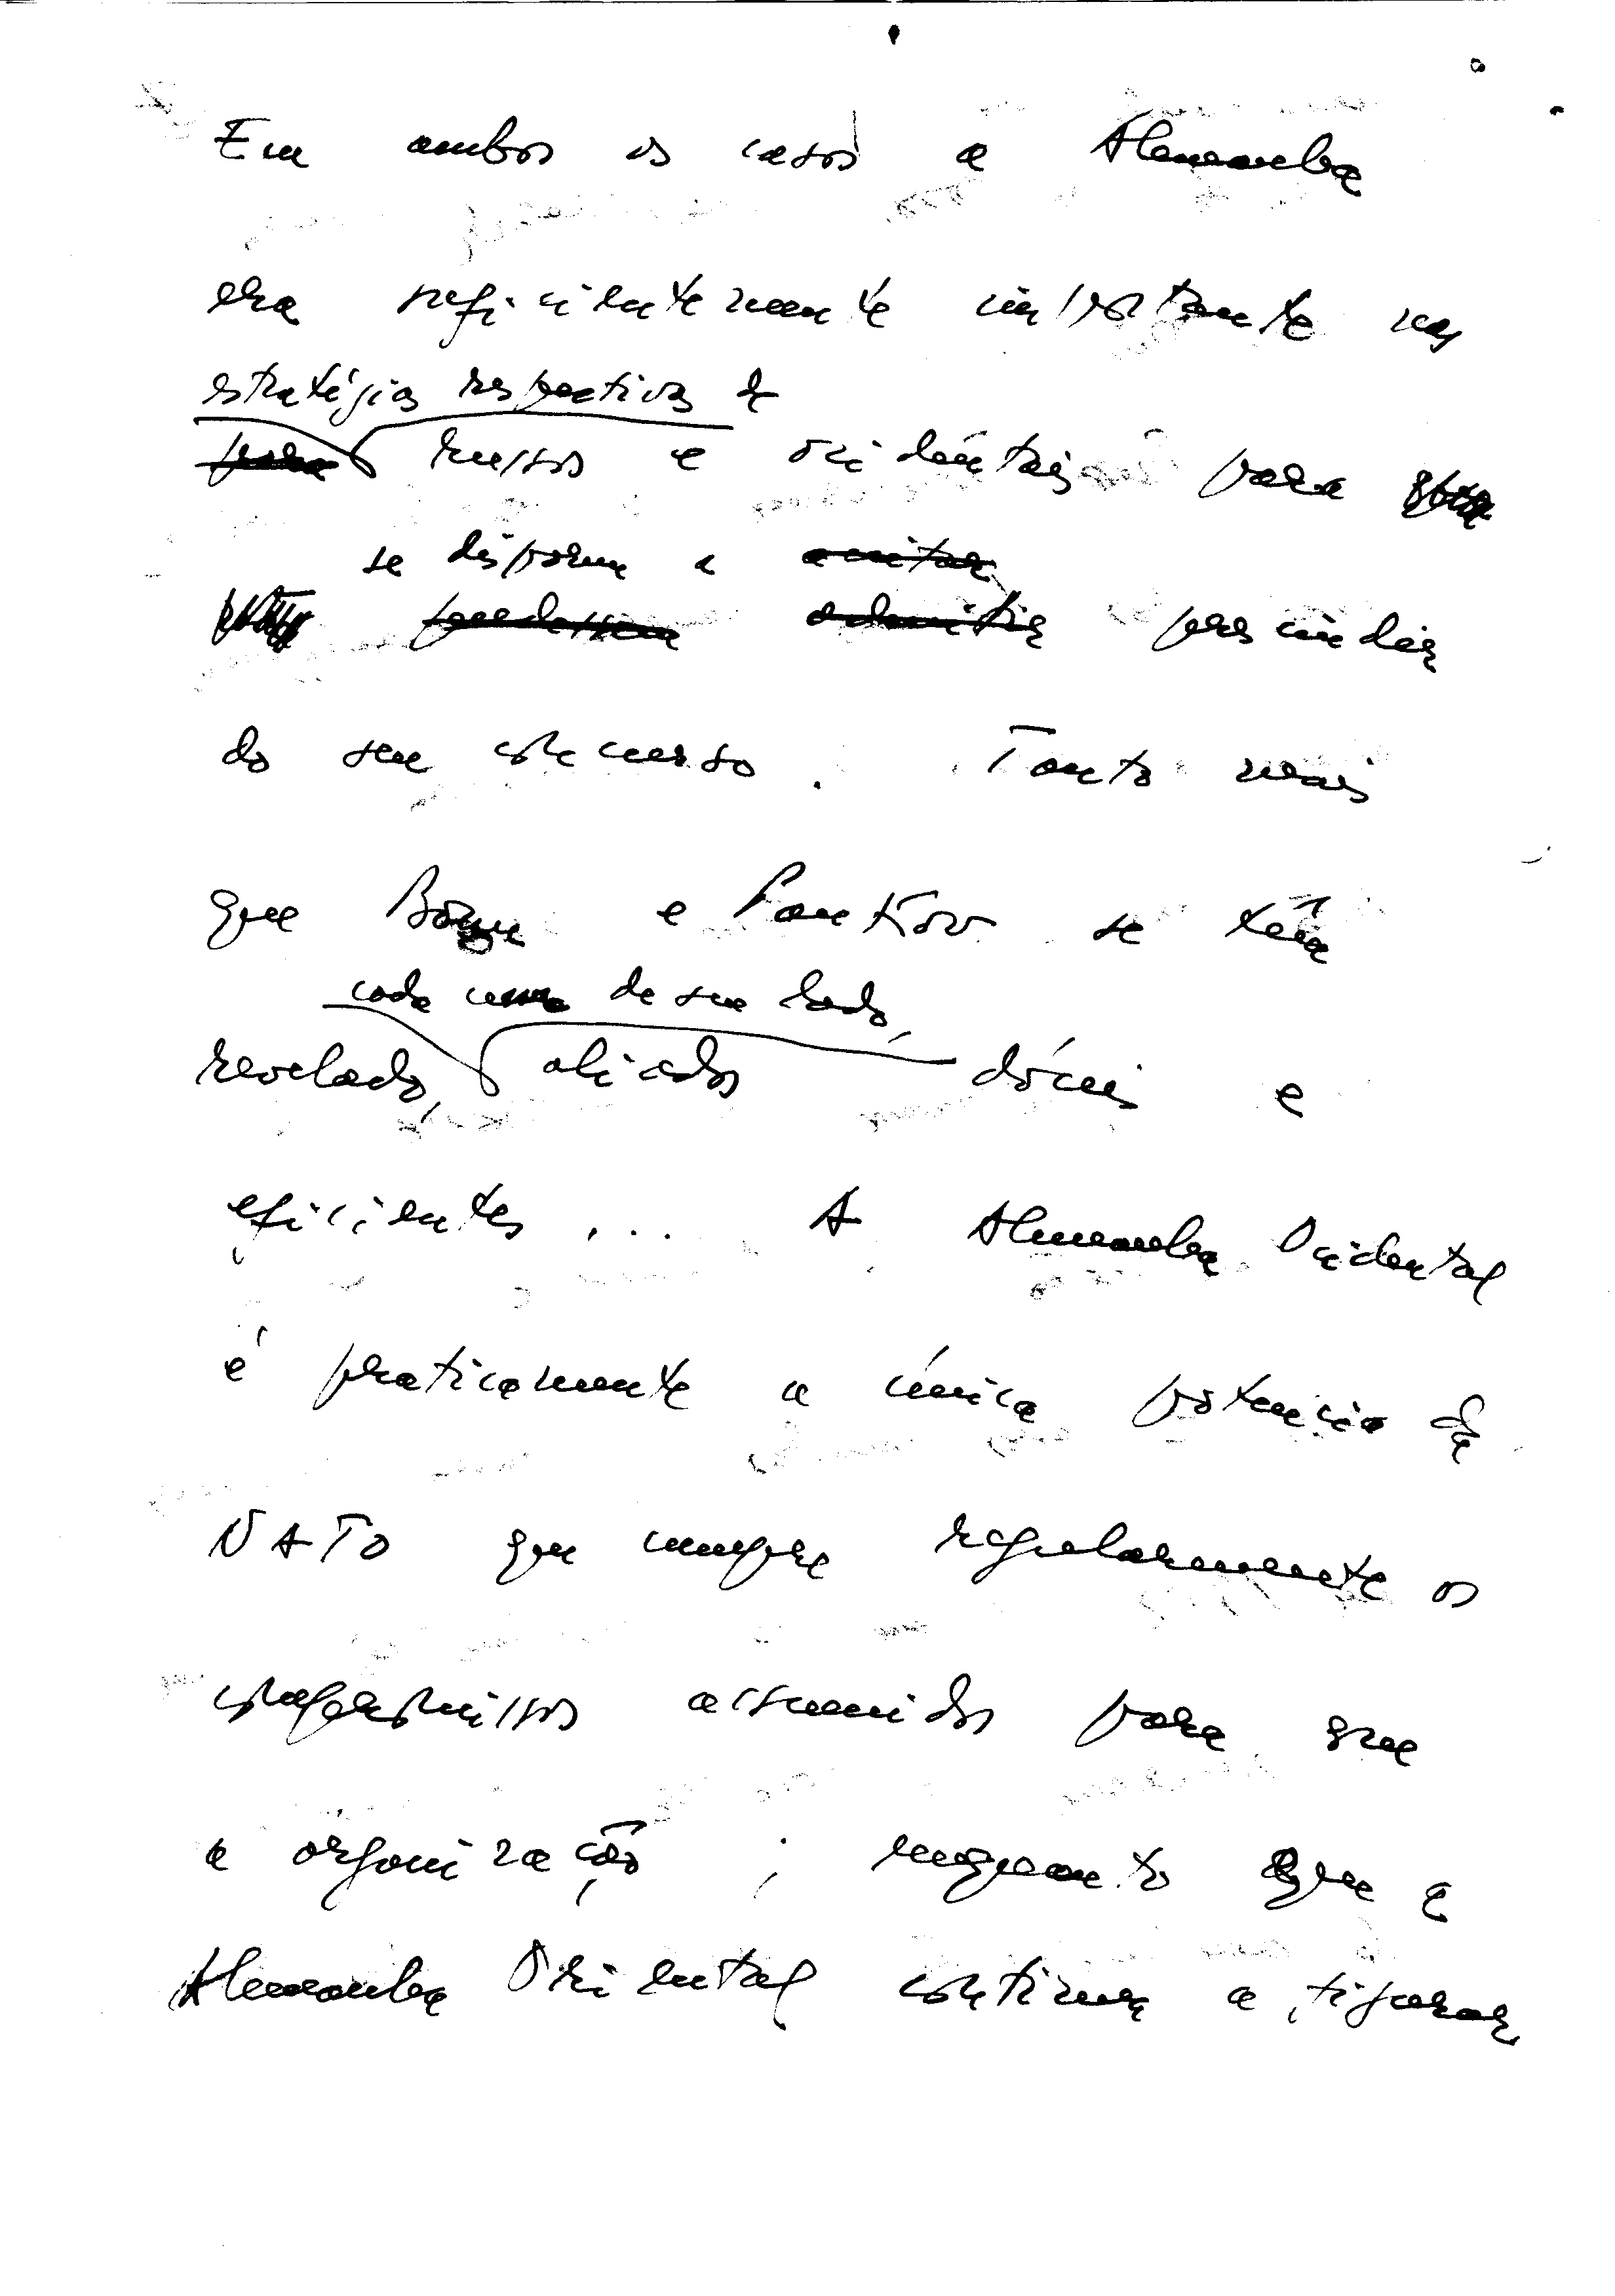 Em ambos os casos a Alemanha
era suficientemente importante nas
estratégias respectivas de
para russos e ocidentais para
se disporem a aceitar
pudessem admitir prescindir
do seu concurso. Tanto mais
que Bonn e Pankov se têm
cada uma de seu lado,
revelado, aliados dóceis e
eficientes... A Alemanha Ocidental
é praticamente a única potência da
NATO que cumpre regularmente os
compromissos assumidos para com
a organização; enquanto que a
Alemanha Oriental continua a figurar